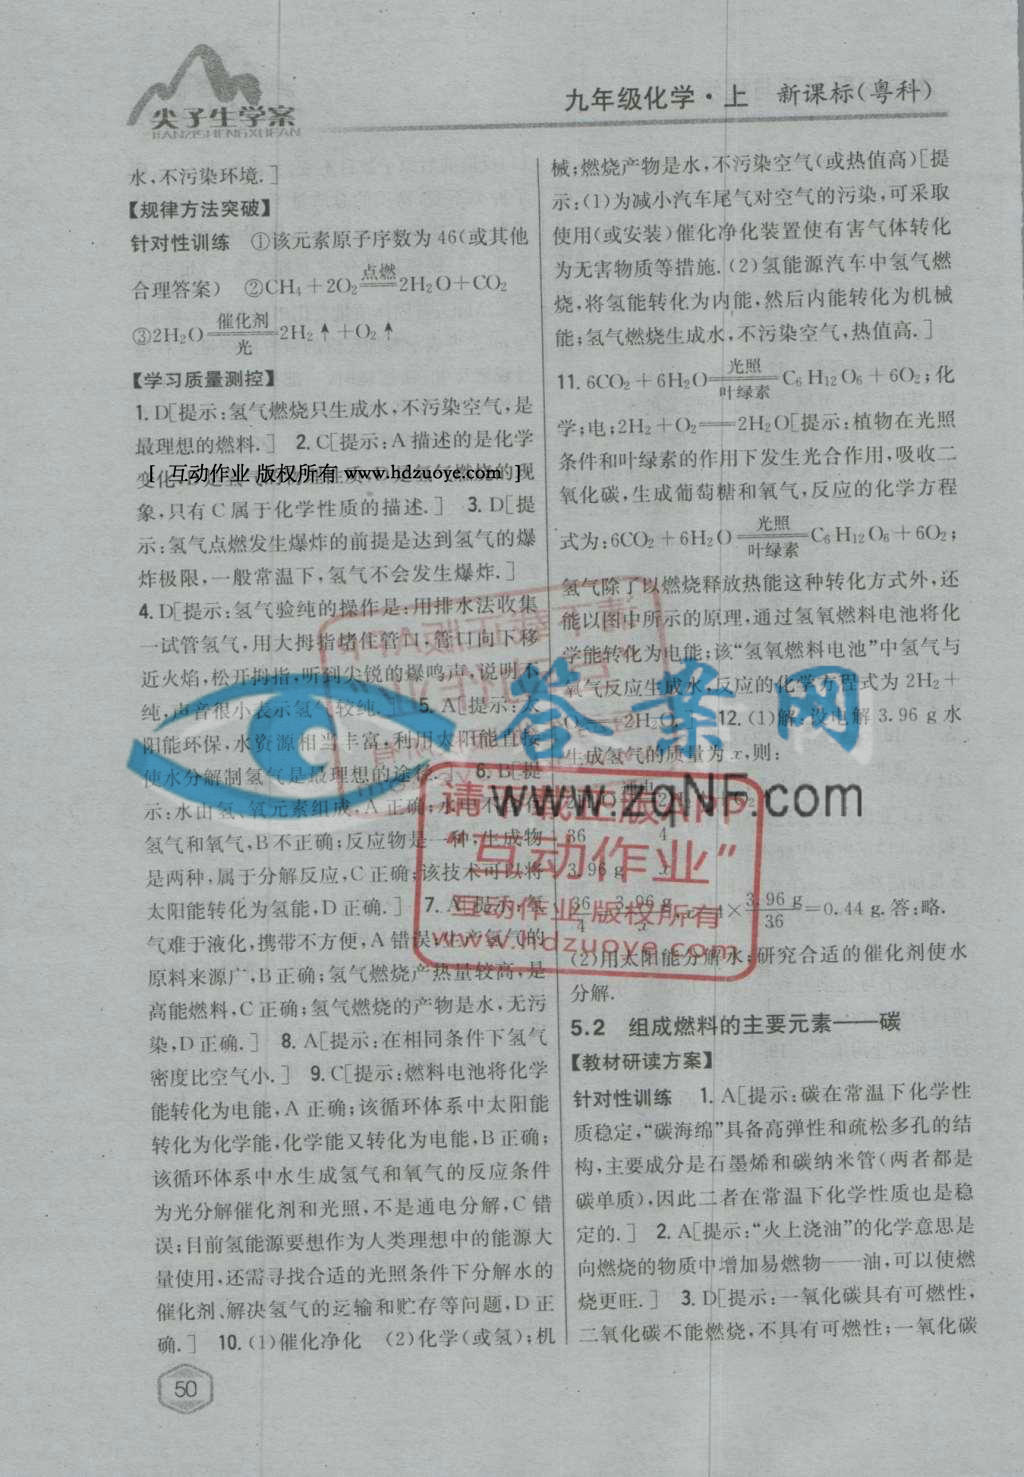 尖子生学案
JIANZISHENGXUEAN
九年级化学·上 新课标(粤科)
水,不污染环境.]
【规律方法突破】
针对性训练 ①该元素原子序数为46(或其他
合理答案) ②CH₄+2O₂ 点燃 2H₂O+CO₂
③2H₂O 催化剂 光 2H₂↑+O₂↑
【学习质量测控】
1. D[提示:氢气燃烧只生成水,不污染空气,是
最理想的燃料.] 2. C[提示:A描述的是化学
[ 互动作业 版权所有 www.hdzuoye.com ]
象,只有C属于化学性质的描述.] 3. D[提
示:氢气点燃发生爆炸的前提是达到氢气的爆
炸极限,一般常温下,氢气不会发生爆炸.]
4. D[提示:氢气验纯的操作是:用排水法收集
一试管氢气,用大拇指堵住管口,管口向下移
近火焰,松开拇指,听到尖锐的爆鸣声,说明不
纯,声音很小表示氢气较纯.] 5. A[提示:太
阳能环保,水资源相当丰富,利用太阳能直接
使水分解制氢气是最理想的途径.] 6. B[提
示:水由氢、氧元素组成,A正确;水中不存在
氢气和氧气,B不正确;反应物是一种,生成物
是两种,属于分解反应,C正确;该技术可以将
太阳能转化为氢能,D正确.] 7. A[提示:氢
气难于液化,携带不方便,A错误;生产氢气的
原料来源广,B正确;氢气燃烧产热量较高,是
高能燃料,C正确;氢气燃烧的产物是水,无污
染,D正确.] 8. A[提示:在相同条件下氢气
密度比空气小.] 9. C[提示:燃料电池将化学
能转化为电能,A正确;该循环体系中太阳能
转化为化学能,化学能又转化为电能,B正确;
该循环体系中水生成氢气和氧气的反应条件
为光分解催化剂和光照,不是通电分解,C错
误;目前氢能源要想作为人类理想中的能源大
量使用,还需寻找合适的光照条件下分解水的
催化剂、解决氢气的运输和贮存等问题,D正
确.] 10. (1)催化净化 (2)化学(或氢);机
械;燃烧产物是水,不污染空气(或热值高)[提
示:(1)为减小汽车尾气对空气的污染,可采取
使用(或安装)催化净化装置使有害气体转化
为无害物质等措施.(2)氢能源汽车中氢气燃
烧,将氢能转化为内能,然后内能转化为机械
能;氢气燃烧生成水,不污染空气,热值高.]
11. 6CO₂+6H₂O 光照 叶绿素 C₆H₁₂O₆+6O₂;化
学;电;2H₂+O₂══2H₂O[提示:植物在光照
条件和叶绿素的作用下发生光合作用,吸收二
氧化碳,生成葡萄糖和氧气,反应的化学方程
式为:6CO₂+6H₂O 光照 叶绿素 C₆H₁₂O₆+6O₂;
氢气除了以燃烧释放热能这种转化方式外,还
能以图中所示的原理,通过氢氧燃料电池将化
学能转化为电能;该“氢氧燃料电池”中氢气与
氧气反应生成水,反应的化学方程式为2H₂+
O₂══2H₂O.] 12. (1)解:设电解3.96 g水
生成氢气的质量为x,则:
通电
36 4
3.96 g x
36/4=3.96 g/x x=4×3.96 g/36=0.44 g.答:略.
(2)用太阳能分解水;研究合适的催化剂使水
分解.
5.2 组成燃料的主要元素——碳
【教材研读方案】
针对性训练 1. A[提示:碳在常温下化学性
质稳定,“碳海绵”具备高弹性和疏松多孔的结
构,主要成分是石墨烯和碳纳米管(两者都是
碳单质),因此二者在常温下化学性质也是稳
定的.] 2. A[提示:“火上浇油”的化学意思是
向燃烧的物质中增加易燃物——油,可以使燃
烧更旺.] 3. D[提示:一氧化碳具有可燃性,
二氧化碳不能燃烧,不具有可燃性;一氧化碳
答案网
www.zqNF.com
请下载正版APP
“互动作业”
互动作业 版权所有
www.hdzuoye.com
50